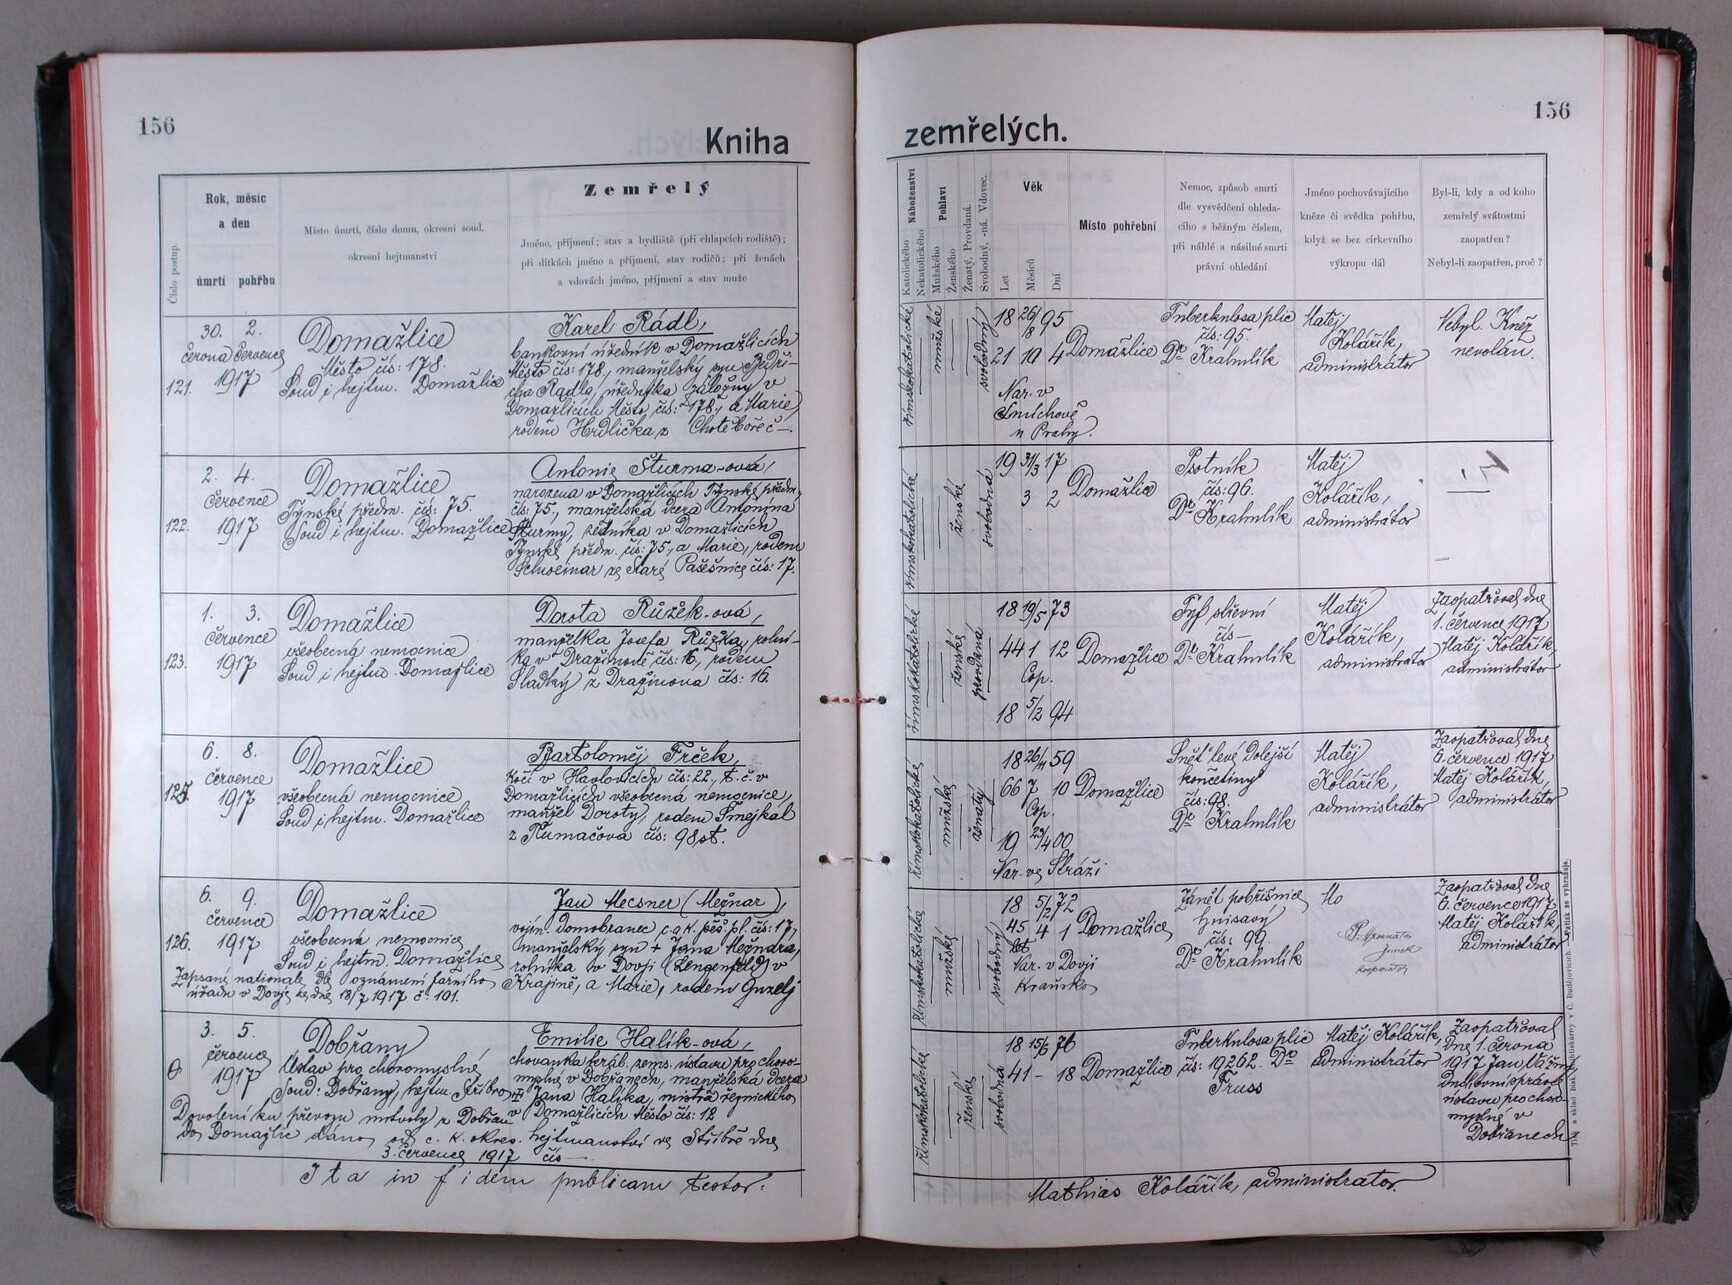 156
Kniha
Číslo postup.
Rok, měsíc
a den
úmrtí pohřbu
Místo úmrtí, číslo domu, okresní soud,
okresní hejtmanství
Zemřelý
Jméno, příjmení; stav a bydliště (při chlapcích rodiště);
při dítkách jméno a příjmení, stav rodičů; při ženách
a vdovách jméno, příjmení a stav muže
121.
30. 2.
června července
1917
Domažlice
Město čís: 178.
Soud i hejtm. Domažlice
Karel Rádl,
bankovní úředník v Domažlicích
Město čís: 178., manželský syn Bedři-
cha Rádla, úředníka záložny v
Domažlicích Město, čís: 178., a Marie,
rodem Hrdlička z Chotěboře č —.
122.
2. 4.
července
1917
Domažlice
Týnské předm. čís: 75.
Soud i hejtm. Domažlice
Antonie Šturma-ová,
narozena v Domažlicích Týnské předm.
čís: 75., manželská dcera Antonína
Šturmy, zedníka v Domažlicích
Týnské předm. čís: 75., a Marie, rodem
Schweinar ze Staré Pasečnice čís: 17.
123.
1. 3.
července
1917
Domažlice
všeobecná nemocnice
Soud i hejtm. Domažlice
Dorota Růžek-ová,
manželka Josefa Růžka, rolní-
ka v Dražinově čís: 16, rodem
Sladký z Dražinova čís: 16.
6. 8.
července
1917
Domažlice
všeobecná nemocnice
Soud i hejtm. Domažlice
Bartoloměj Frček,
kočí v Havlovicích čís: 22., t. č. v
Domažlicích všeobecná nemocnice,
manžel Doroty, rodem Smejkal
z Tlumačova čís: 98 st.
126.
6. 9.
července
1917
Domažlice
všeobecná nemocnice
Soud i hejtm. Domažlice
Zapsaní nationale dle oznámení farního
úřadu v Dovji ze dne 18/7 1917 č. 101.
Jan Mecsner (Mežnar),
vojín Domobranec c. a k. pěš. pl. čís: 17,
manželský syn + Jana Mežnara,
rolníka v Dovji (Lengenfeld) v
Krajině, a Marie, rodem
3. 5.
července
1917
Dobřany
Ústav pro choromyslné
Soud: Dobřany, hejtm Stříbro
Emilie Halík-ová,
chovanka král. zems. ústavu pro choro-
myslné v Dobřanech, manželská dcera
Jana Halíka, mistra řeznického
v Domažlicích Město čís: 12
Dovolení ku převozu mrtvoly z Dobřan
do Domažlic dáno od c. k. okres. hejtmanství ve Stříbře dne
3. července 1917 čís —
Ita in fidem publicam testor:
156
zemřelých.
Náboženství
Katolického
Nekatolického
Pohlaví
Mužského
Ženského
Ženatý, Provdaná.
Svobodný, -ná. Vdovec.
Věk
Let
Měsíců
Dní
Místo pohřební
Nemoc, způsob smrti
dle vysvědčení ohleda-
cího s běžným číslem,
při náhlé a násilné smrti
právní ohledání
Jméno pochovávajícího
kněze či svědka pohřbu,
když se bez církevního
výkropu dál
Byl-li, kdy a od koho
zemřelý svátostmi
zaopatřen?
Nebyl-li zaopatřen, proč?
římskokatolické
mužské
svobodný
18 26/8 95
21 10 4
Nar. v
Smíchově
u Prahy.
Domažlice
Tuberkulosa plic
čís: 95.
Dr Krahulík
Matěj
Kolářík,
administrátor
Nebyl. Kněz
nevolán.
římskokatolické
ženské
svobodná
19 31/3 17
3 2
Domažlice
Psotník
čís: 96.
Dr Krahulík
Matěj
Kolářík,
administrátor
římskokatolické
ženské
provdaná
18 19/5 73
44 1 12
Cop.
18 5/2 94
Domažlice
Tyf střevní
čís —
Dr Krahulík
Matěj
Kolářík,
administrátor
Zaopatřoval dne
1. července 1917
Matěj Kolářík,
administrátor
římskokatolické
mužské
ženatý
18 26/11 59
66 7 10
Cop.
19 00
Nar. ve Stráži
Domažlice
Sněť levé dolejší
končetiny
čís: 98.
Dr Krahulík
Matěj
Kolářík,
administrátor
Zaopatřoval dne
6. července 1917
Matěj Kolářík,
administrátor
římskokatolické
mužské
svobodný
18 5/2 72
45 4 1
let
Nar. v Dovji
Kraňsko
Domažlice
Zánět pobřišnice
hnisavý
čís: 99.
Dr Krahulík
kooperator
Zaopatřoval dne
6. července 1917
Matěj Kolářík,
administrátor
římskokatolické
ženské
svobodná
18 15/6 76
41 – 18
Domažlice
Tuberkulosa plic
čís: 19262. Dr
Fruss
Matěj Kolářík,
administrátor
Zaopatřoval
dne 1. června
1917 Jan
duchovní správce
ústavu pro choro-
myslné v
Dobřanech
Mathias Kolářík, administrator.